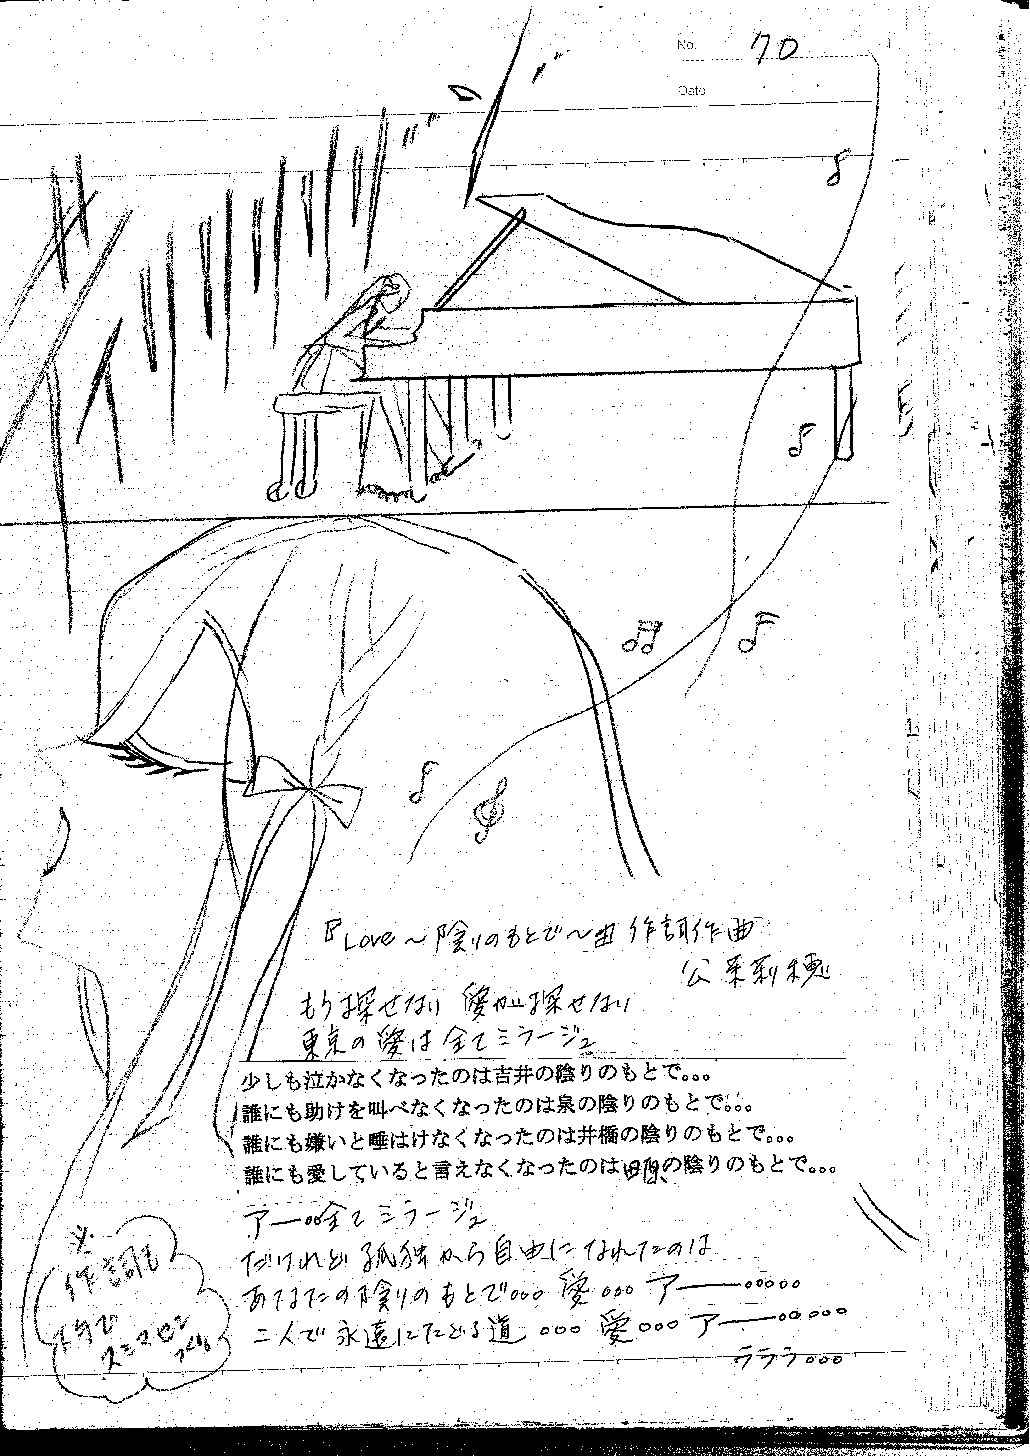 No. 70
Date
『Love～陰りのもとで～曲 作詞作曲
公 茉莉穂
もう探せない 愛が探せない
東京の愛は全てミラージュ
少しも泣かなくなったのは吉井の陰りのもとで。。。
誰にも助けを叫べなくなったのは泉の陰りのもとで。。。
誰にも嫌いと唾はけなくなったのは井橋の陰りのもとで。。。
誰にも愛していると言えなくなったのは の陰りのもとで。。。
アー―。。全てミラージュ
だけれど孤独から自由になれたのは
あなたの陰りのもとで。。。愛。。。アー――。。。。。
二人で永遠にたどる道。。。愛。。。アー――。。。。。
ラララ。。。
※
作詞も
スミマセン